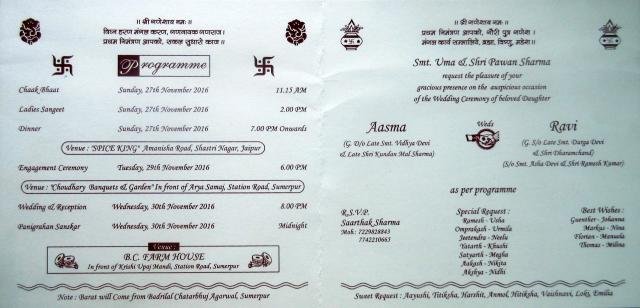 ॥ श्री गणेशाय नमः ॥
विघ्न हरण मंगल करण, गणनायक गणराज।
प्रथम निमंत्रण आपको, सकल सुधारो काज॥
Programme
Chaak Bhaat Sunday, 27th November 2016 11.15 AM
Ladies Sangeet Sunday, 27th November 2016 2.00 PM
Dinner Sunday, 27th November 2016 7.00 PM Onwards
Venue : 'SPICE KING' Amanisha Road, Shastri Nagar, Jaipur
Engagement Ceremony Tuesday, 29th November 2016 6.00 PM
Venue : 'Choudhary Banquets & Garden' In front of Arya Samaj, Station Road, Sumerpur
Wedding & Reception Wednesday, 30th November 2016 8.00 PM
Panigrahan Sanskar Wednesday, 30th November 2016 Midnight
Venue :
B.C. FARM HOUSE
In front of Krishi Upaj Mandi, Station Road, Sumerpur
Note : Barat will Come from Badrilal Chatarbhuj Agarwal, Sumerpur
॥ श्री गणेशाय नमः ॥
प्रथम निमंत्रण आपको, गौरी पुत्र गणेश।
मंगल कार्य सम्भालिये, ब्रह्मा, विष्णु, महेश॥
Smt. Uma & Shri Pawan Sharma
request the pleasure of your
gracious presence on the auspicious occasion
of the Wedding Ceremony of beloved Daughter
Aasma Weds Ravi
(G. D/o Late Smt. Vidhya Devi
& Late Shri Kundan Mal Sharma)
(G. S/o Late Smt. Durga Devi
& Shri Dharamchand)
(S/o Smt. Asha Devi & Shri Ramesh Kumar)
as per programme
R.S.V.P.
Saarthak Sharma
Mob: 7229818843
7742210663
Special Request :
Ramesh - Usha
Omprakash - Urmila
Jeetendra - Neelu
Yatarth - Khushi
Satyarth - Megha
Aakash - Nikita
Akshya - Nidhi
Best Wishes :
Guenther - Johanna
Markus - Nina
Florian - Manuela
Thomas - Milina
Sweet Request : Aayushi, Titiksha, Harshit, Anmol, Hitiksha, Vaishnavi, Loki, Emilia